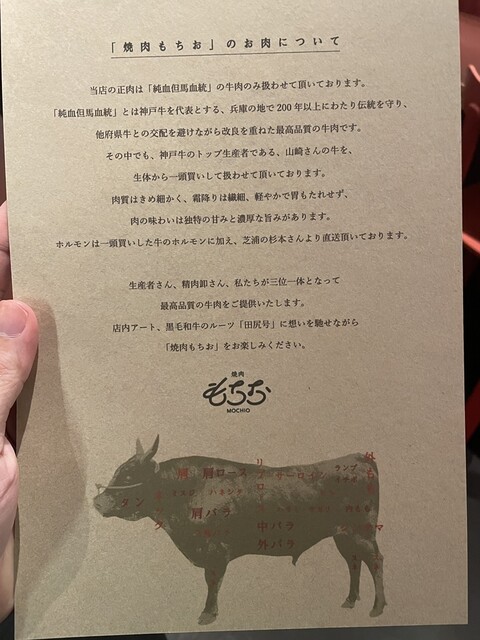 「焼肉もちお」のお肉について
当店の正肉は「純血但馬血統」の牛肉のみ扱わせて頂いております。
「純血但馬血統」とは神戸牛を代表とする、兵庫の地で200年以上にわたり伝統を守り、
他府県牛との交配を避けながら改良を重ねた最高品質の牛肉です。
その中でも、神戸牛のトップ生産者である、山崎さんの牛を、
生体から一頭買いして扱わせて頂いております。
肉質はきめ細かく、霜降りは繊細、軽やかで胃もたれせず、
肉の味わいは独特の甘みと濃厚な旨みがあります。
ホルモンは一頭買いした牛のホルモンに加え、芝浦の杉本さんより直送頂いております。
生産者さん、精肉卸さん、私たちが三位一体となって
最高品質の牛肉をご提供いたします。
店内アート、黒毛和牛のルーツ「田尻号」に想いを馳せながら
「焼肉もちお」をお楽しみください。
焼肉
もちお
MOCHIO
肩 肩ロース
サーロイン
ランプ
タン
肩バラ
中バラ
外バラ